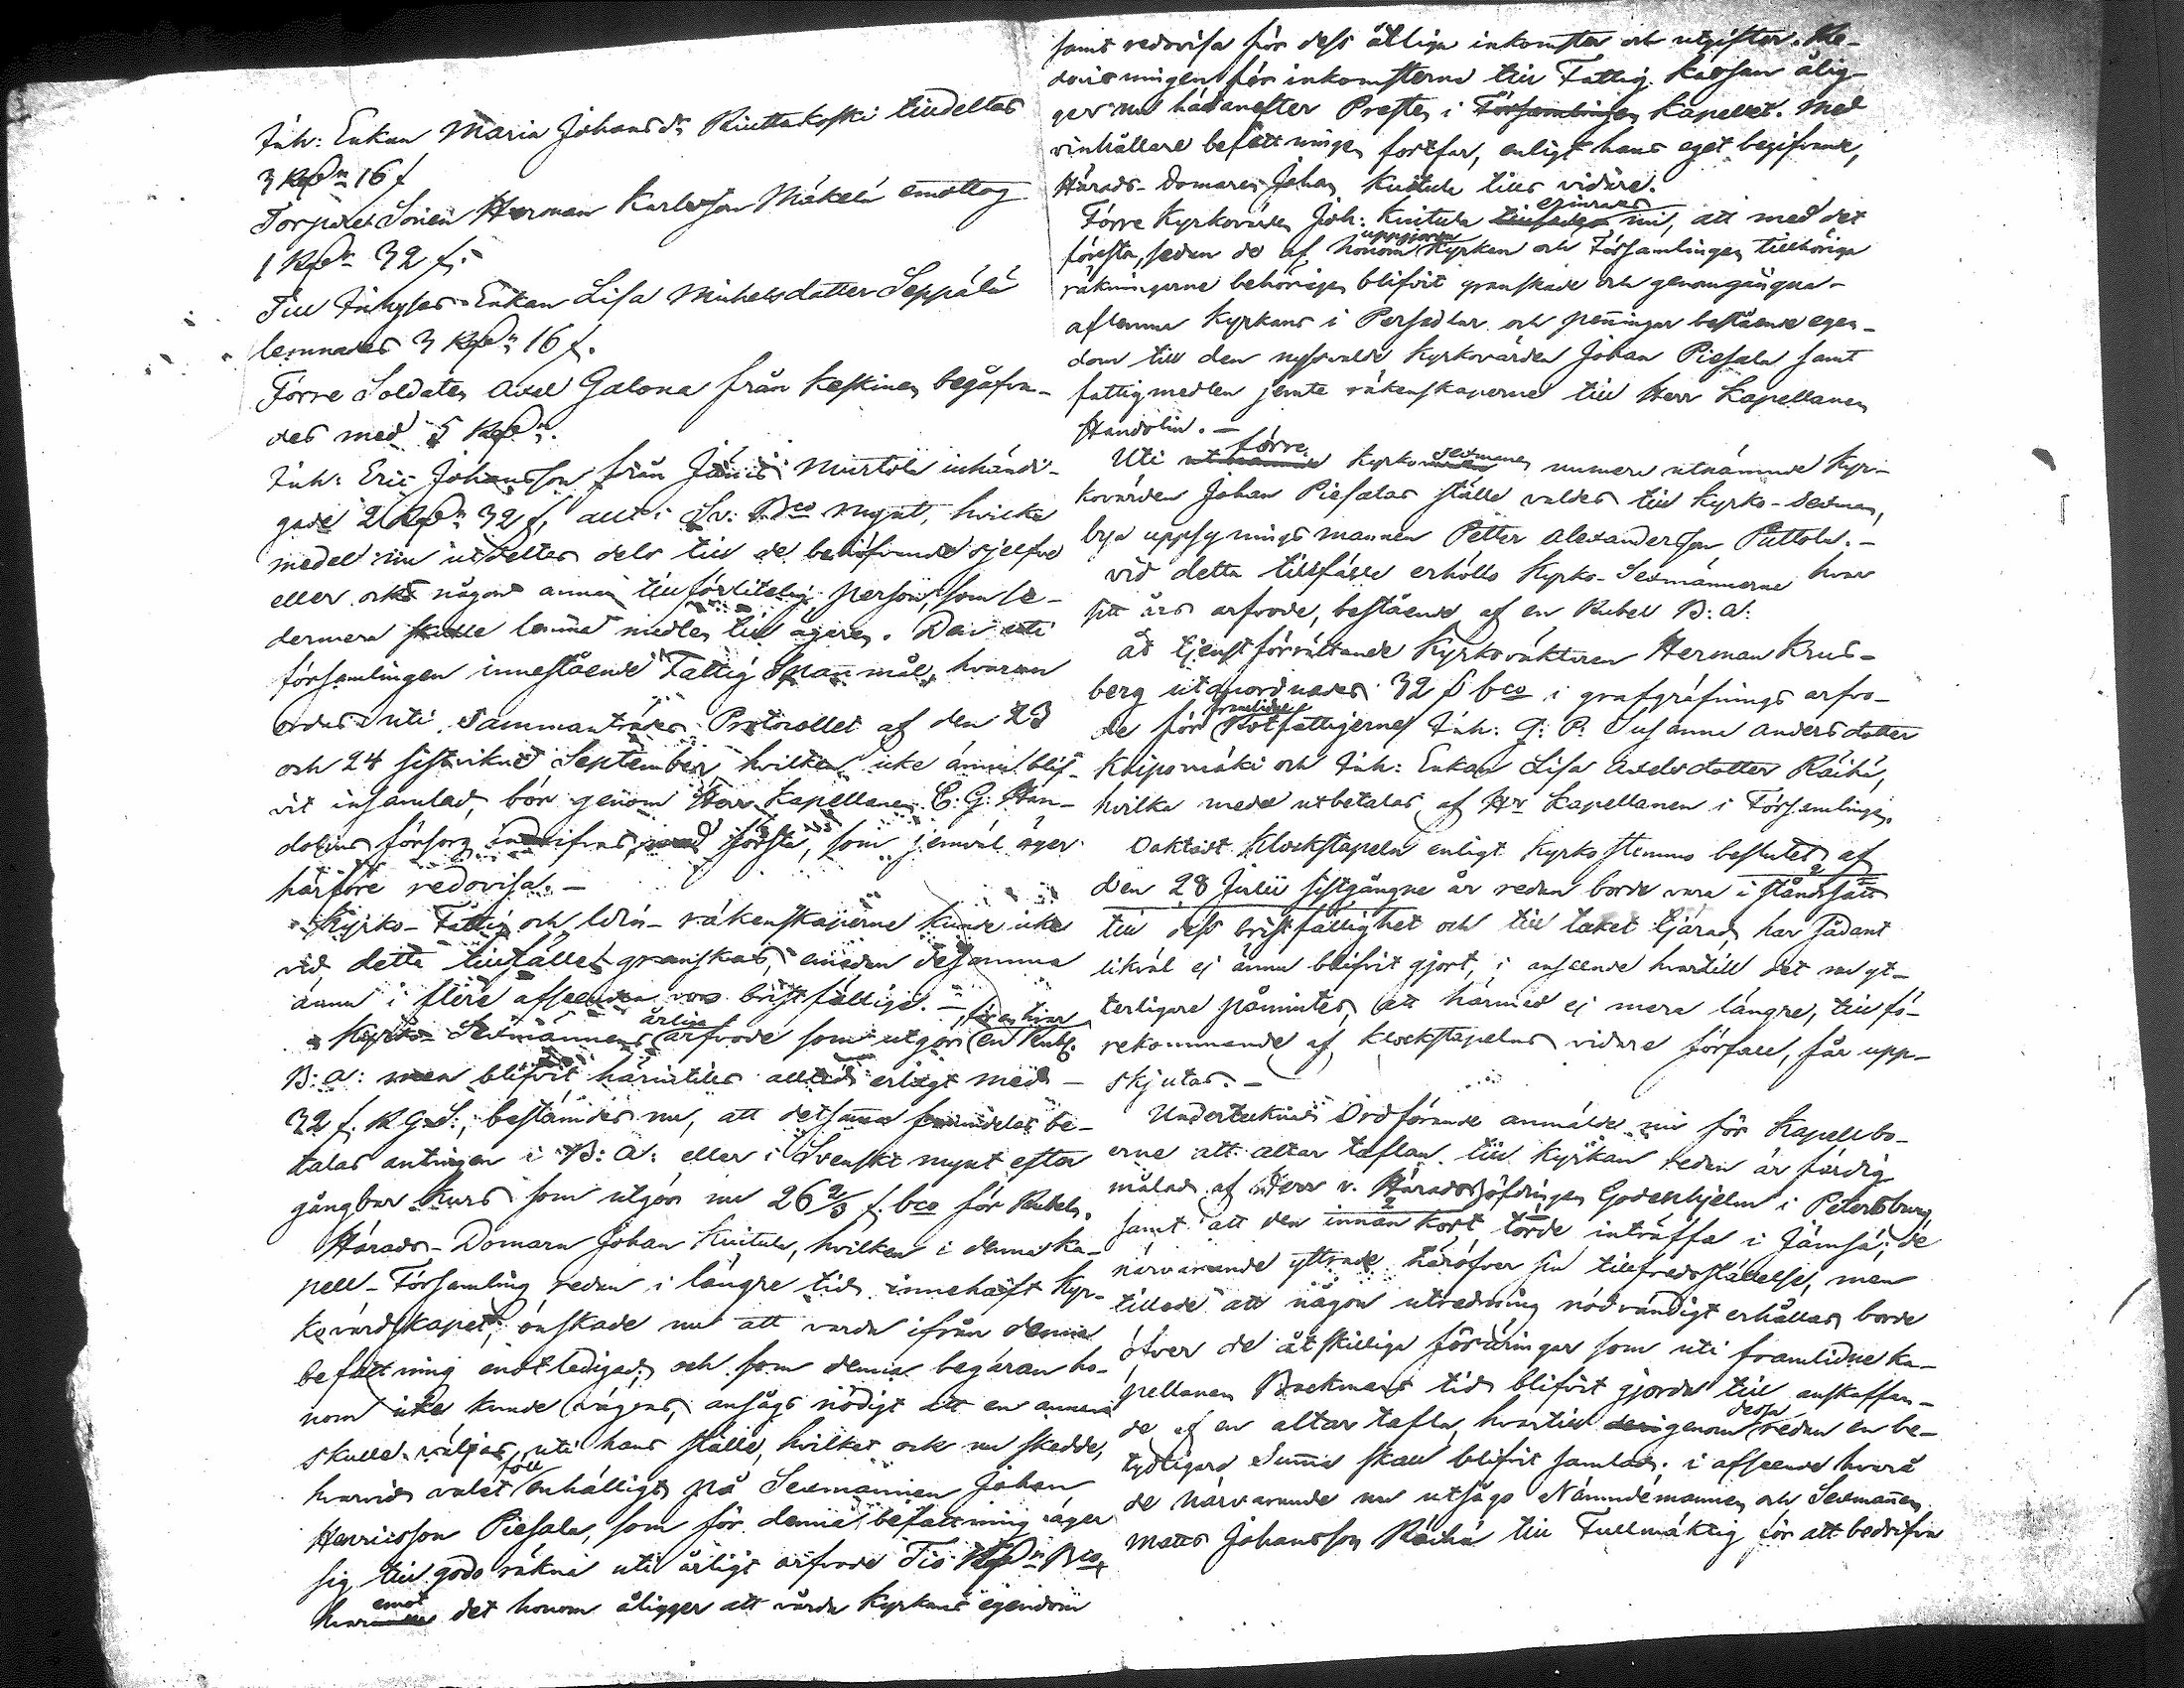 Inh: Enkan Maria Johansdr Riuttakoski tilldeltes
3 Rdr 16 s
Torpare Sonen Herman Karlsson Mäkelä emottog
1 Rdr 32 s.
Till Inhyses Enkan Lisa Michelsdatter Seppälä
lemnades 3 Rdr 16 s.
Förre Soldaten Axel Galona från Keskinen begåfva-
des med 5 Rdr.
Inh: Eric Johansson från Jämsä Murtola inhändi-
gade 2 Rdr 32 s, allt i Sv: Bco mynt, hvilka
medel nu utdeltes dels till de behöfvande sjelfve
eller ock någon annan tillförlitelig person, som se-
dermera skulle lemna medlen till ägaren. Den uti
församlingen innestående Fattig Spanmål, hvarom
ordas uti Sammanträdes Protocollet af den 23
och 24 sistvikne September, hvilken icke ännu blif-
vit insamlad, bör genom Herr Kapellanen C: G: Han-
dolins försorg indrifvas med första, som jemväl äger
härföre redovisa.-
Kyrko- Fattig och räkenskaperne kunde icke
vid detta tillfälle granskas, emedan desamma
ännu i flere afseenden voro bristfällige. -
Kyrko- Sexmännens årliga arfvode som utgör för en hvar en Rubel
B: A: men blifvit härintills alltid erlagt med
32 s. R.G.S., bestämdes nu, att detsamma framdeles be-
talas antingen i B: A: eller i Svenskt mynt efter
gångbar Kurs som utgör nu 26 2/3 s. bco för Rubeln.
Härads-Domaren Johan Kuitula, hvilken i denna Ka-
pell-Församling redan i längre tid innehaft Kyr-
kovärdskapet, önskade nu att varda ifrån denna
befattning entledigad, och som denna begäran ho-
nom icke kunde vägras, ansågs nödigt att en annan
skulle väljas uti hans ställe, hvilket ock nu skedde,
hvarvid valet föll enhälligt på Sexmannen Johan
Henricsson Piesala, som för denna befattning äger
sig till godo räkna uti årligt arfvode Tio Rdr Bco,
hvaremot det honom åligger att vårda Kyrkans egendom
samt redovisa för dess årliga inkomster och utgifter. Re-
dovisningen för inkomsterna till Fattig Kassan ålig-
ger nu hädanefter Presten i Församlingen Kapellet. Med
vinhållare befattningen fortfar, enligt hans eget begifvande,
Härads-Domaren Johan Kuitula tills vidare.
Förre Kyrkovärden Joh: Kuitula tillsades erinrades nu, att med det
första, sedan de af honom uppgjorda Kyrkan och Församlingen tillhöriga
räkningarne behörigen blifvit granskade och genomgångna-
aflemna Kyrkans i Persedlar och penningar bestående egen-
dom till den nyssvalde Kyrkovärden Johan Piesala samt
fattigmedlen jemte räkenskaperne till Herr Kapellanen
Handolin.-
Uti förre Kyrko sexmannen numera utnämnde Kyr-
kovärden Johan Piesalas ställe valdes till Kyrko-Sexman,
bya uppsyningsmannen Petter Alexandersson Puttola.-
vid detta tillfälle erhöllo Kyrko-Sexmännerne hvar
sitt års arfvode, bestående af en Rubel B: A:
åt tjenstförrättande Kyrkoväktaren Herman Krus-
berg utanordnades 32 s bco i grafgräfnings arfvo-
de för framlidne Rotfattigerne Inh: G: P: Susanna Andersdotter
Kiipomäki och Inh: Enkan Lisa Axelsdotter Räihä,
hvilka medel utbetalas af Hr Kapellanen i Församlingen.
Oaktadt Klockstapeln enligt Kyrkostämmo beslutet af
den 28 Julii sistgångne år redan borde vara i ståndsatt
till dess bristfällighet och till taket tjärad, har sådant
likväl ej ännu blifvit gjort, i anseende hvartill det nu yt-
terligare påmintes, att härmed ej mera längre, till fö-
rekommande af klockstapelns vidare förfall, får upp-
skjutas.-
Undertecknad Ordförande anmälde nu för Kapellbo-
erne att altar taflan till Kyrkan redan är färdig
målad af Herr v. Häradshöfdingen Godenhjelm i Petersburg
samt att den innan kort, torde inträffa i Jämsä; de
närvarande yttrade häröfver sin tillfredsställelse, men
tillade att någon utredning nödvändigt erhållas borde
öfver de åtskilliga föräringar som uti framlidne Ka-
pellanen Backmans tid blifvit gjorda till anskaffan-
de af en altar tafla, hvartill genom dessa redan en be-
tydligare Summa skall blifvit samlad; i afseende hvarå
de närvarande nu utsågo Nämndemannen och Sexmannen
Matts Johansson Räihä till Fullmäktig för att bedrifva